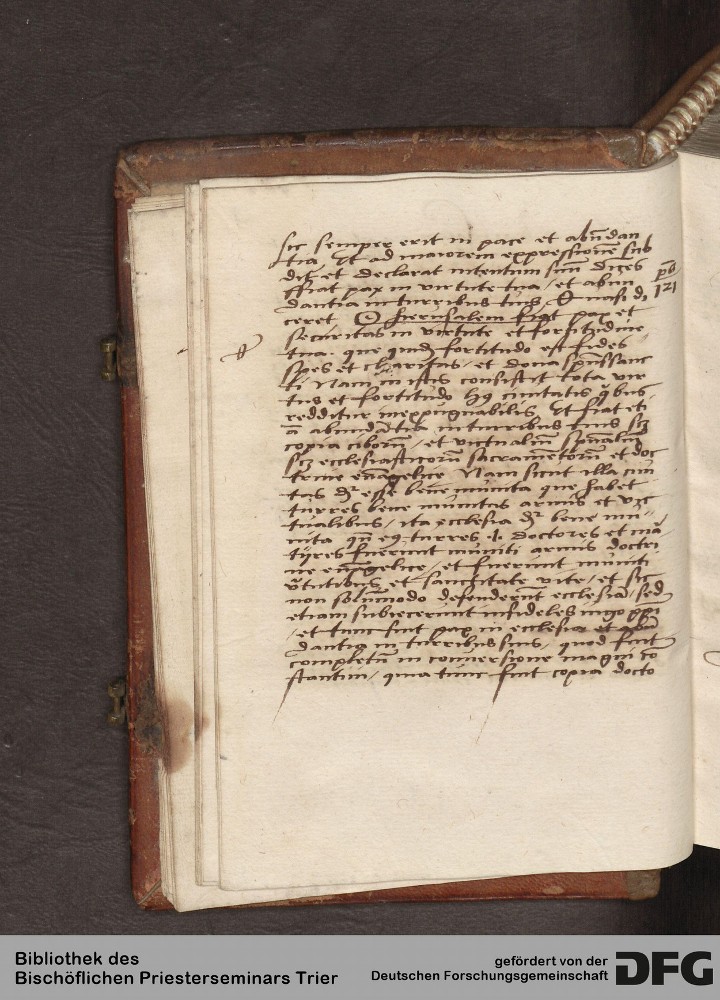 sic semper erit in pace et abūdan
tia Et ad maiorem expressionē sub
dit et declarat intentum suū dicēs
ps
121
ffiat pax in virtute tua / et abun
dantia in turribus tuis Quasi di
ceret O hierusalem fiat pax et
securitas in virtute et fortitudine
tua. que quidē fortitudo est fides
spes et charitas / et dona spūssanc
ti Nam in istis consistit tota vir
tus et fortitudo huius ciuitatis quibus
redditur inexpugnabilis Et fiat eti
ā abundātia in turribus tuis scz
copia ciborū / et victualiū spūaliū
scz ecclesiasticorū sacramentorū et doc
trine euāgelice Nam sicut illa ciui
tas dr esse bene munita que habet
turres bene munitas armis et vic
tualibus / ita ecclesia dr bene mu-
nita qn̄ eius turres .i. doctores et mar
tyres fuerunt muniti armis doctri
ne euāgelice / et fuerunt muniti
virtutibus et sanctitate vite / et sic
non solūmodo defenderunt ecclesiā / sed
etiam subiecerunt infideles iugo xpi
/ et tunc fuit pax in ecclesia et abū
dantia in turribus suis / quod fuit
completū in conuersione magni cō
stantini / quia tunc fuit copia docto
Bibliothek des
Bischöflichen Priesterseminars Trier
gefördert von der
Deutschen Forschungsgemeinschaft
DFG